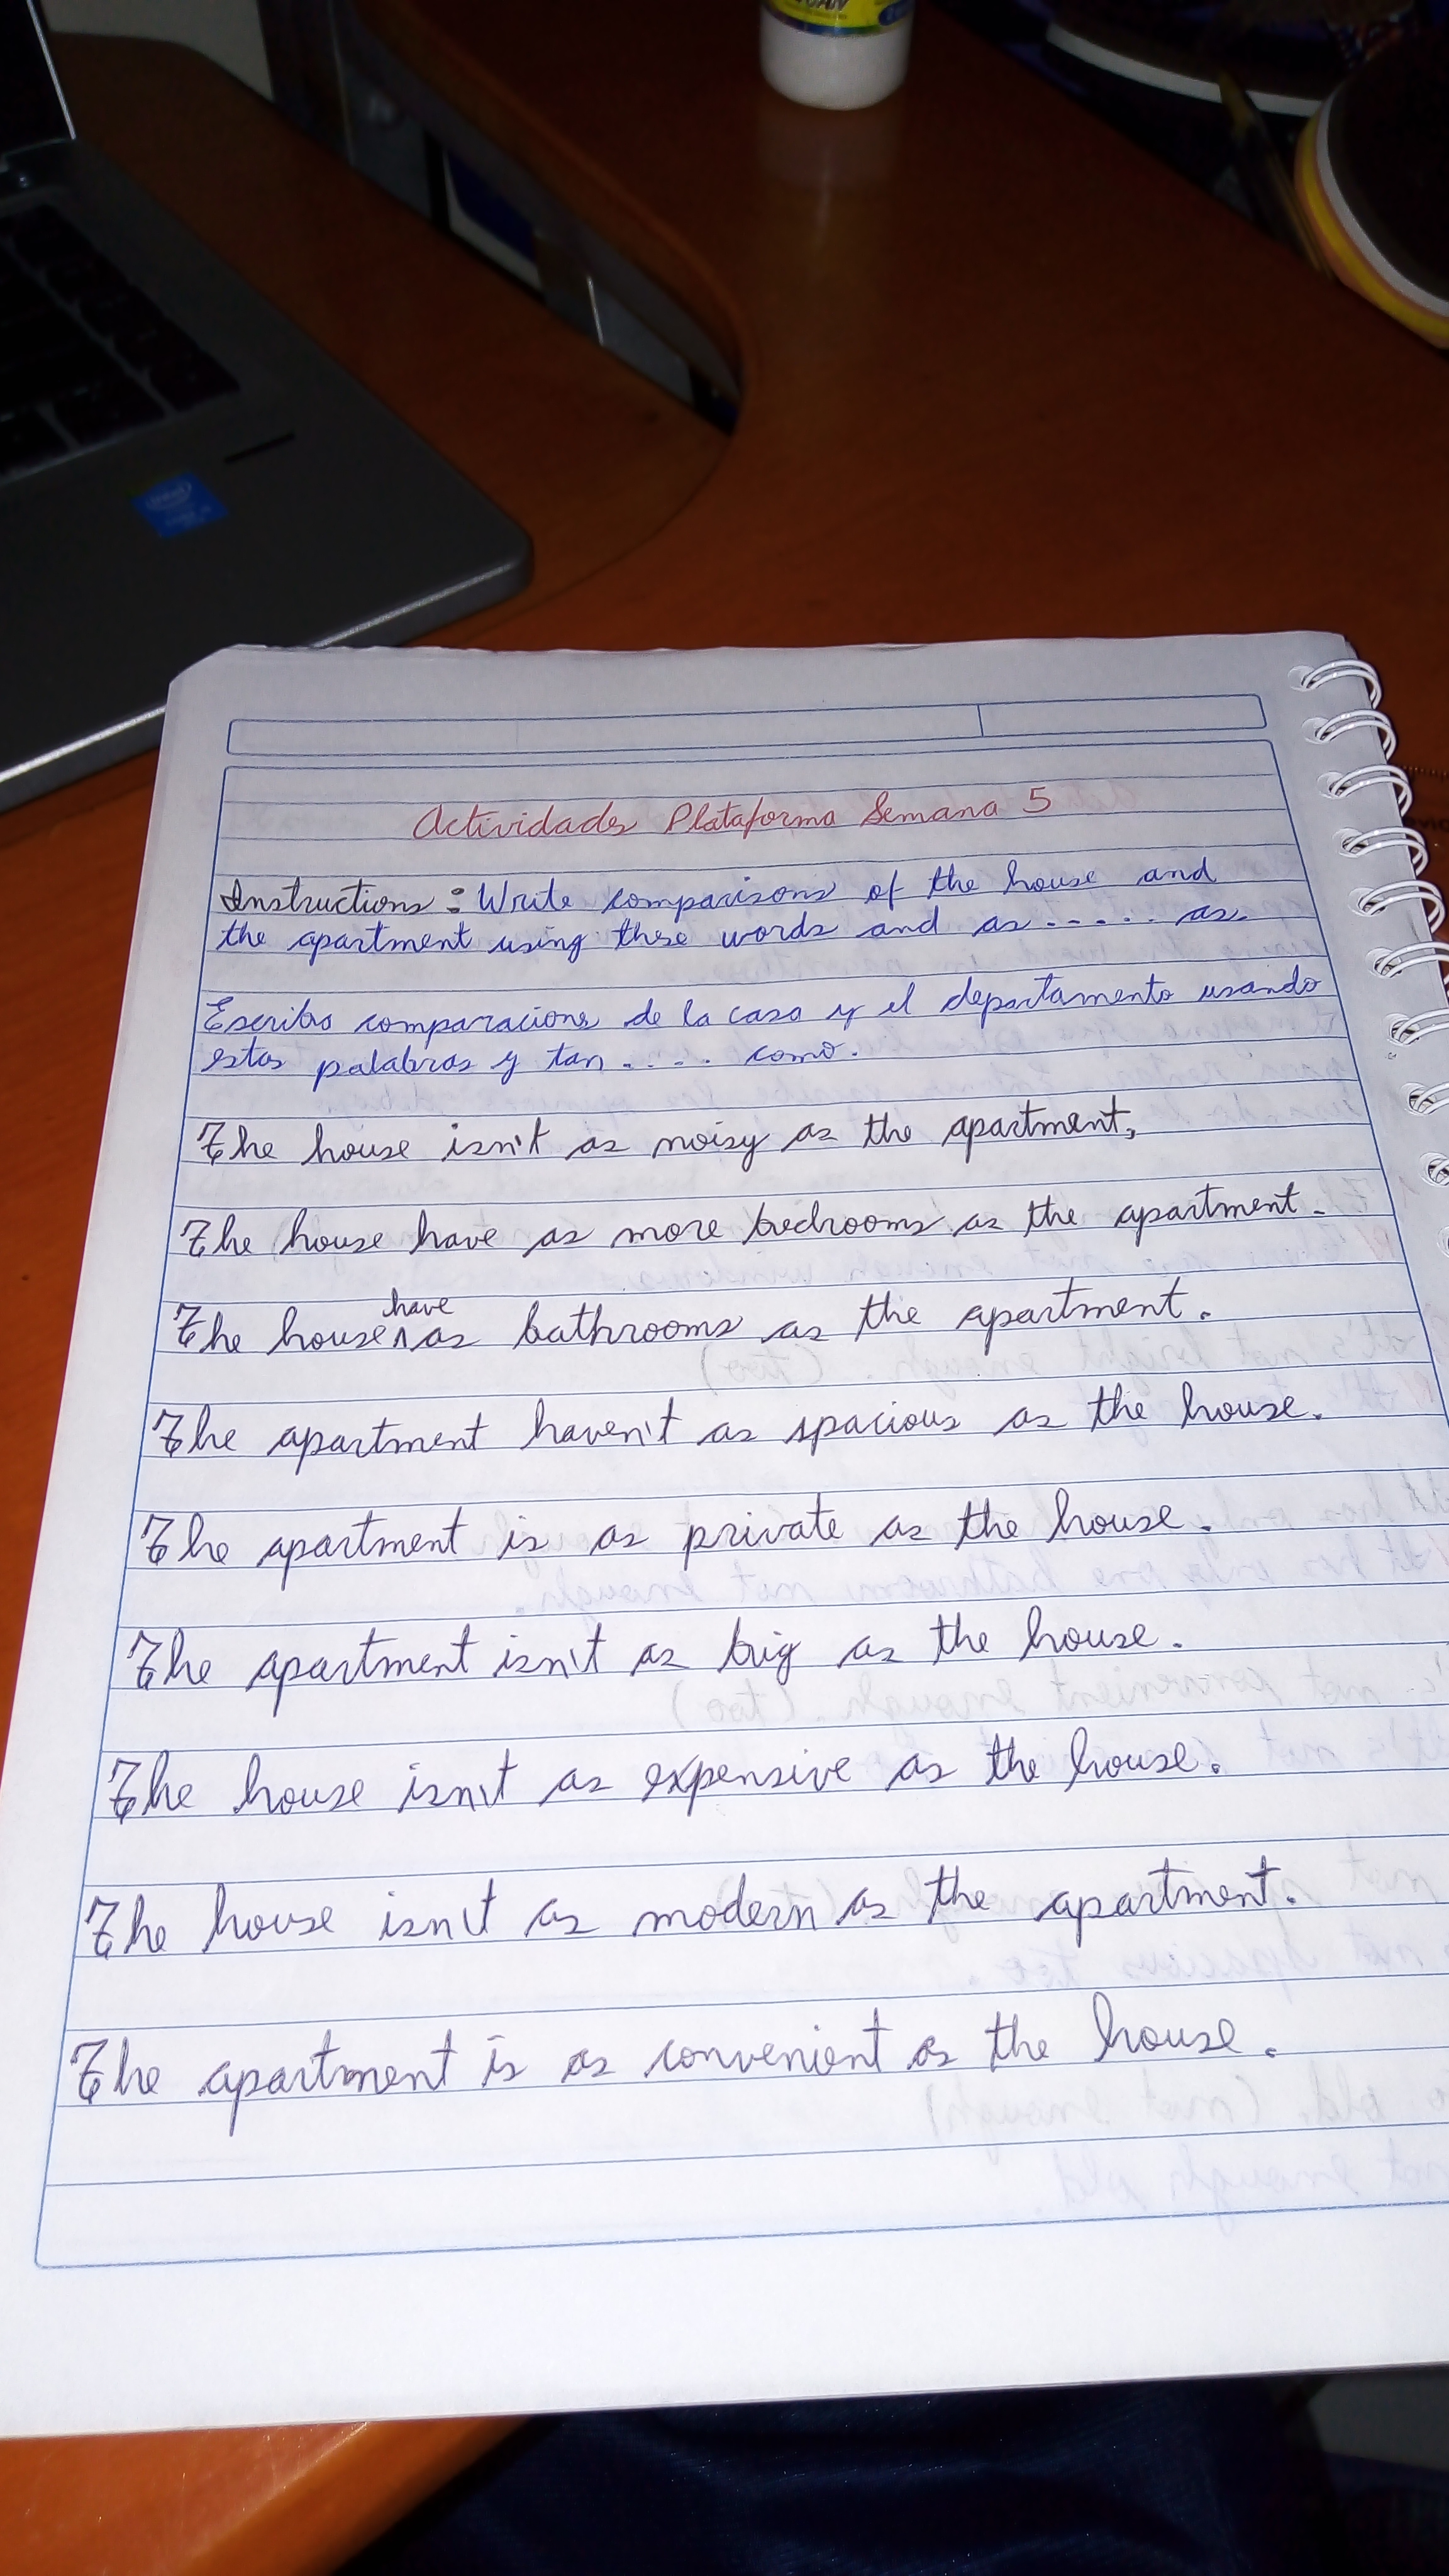 Actividades Plataforma Semana 5
Instructions: Write comparisons of the house and
the apartment using these words and as ..... as.
Escriba comparacions de la casa y el departamento usando
estas palabras y tan .... como.
The house isn't as noisy as the apartment,
The house have as more bedrooms as the apartment.
The house have as bathrooms as the apartment.
The apartment haven't as spacious as the house.
The apartment is as private as the house.
The apartment isn't as big as the house.
The house isn't as expensive as the house.
The house isn't as modern as the apartment.
The apartment is as convenient as the house.
intel